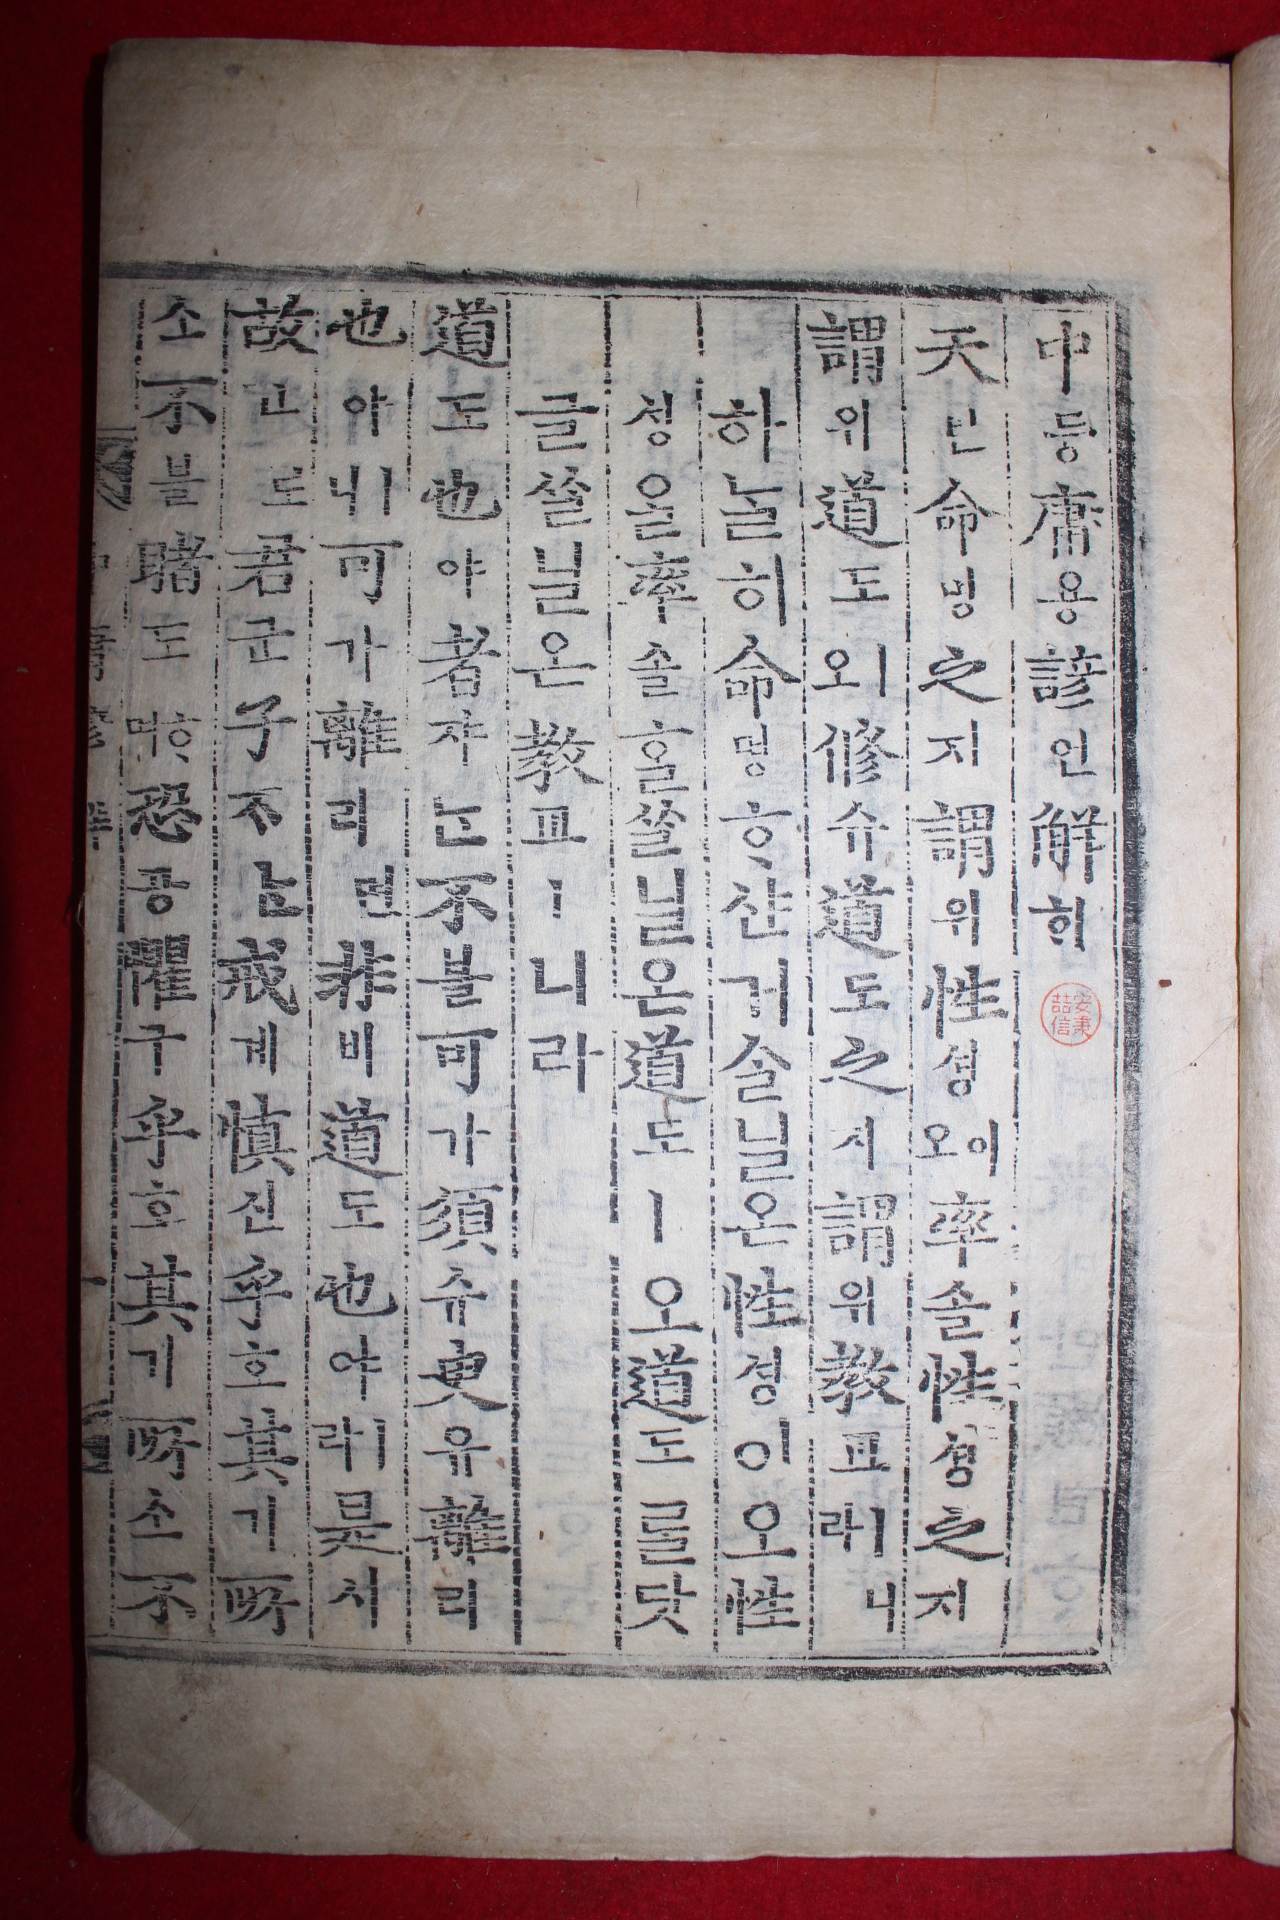 中듕庸용諺언解ᄒᆡ
安秉喆信
天텬命명之지謂위性셩이오率솔性셩之지
謂위道도ㅣ오修슈道도之지謂위敎교ㅣ니라
하ᄂᆞᆯ히命명ᄒᆞ샨거슬닐온性셩이오性
셩을率솔ᄒᆞᆯ쓸닐온道도ㅣ오道도를닷
글쓸닐온敎교ㅣ니라
道도也야者쟈ᄂᆞᆫ不블可가須슈臾유離리
也야ㅣ니可가離리면非비道도也야ㅣ라是시
故고로君군子ᄌᆞᄂᆞᆫ戒계愼신乎호其기所
소不블睹도ᄒᆞ며恐공懼구乎호其기所소不